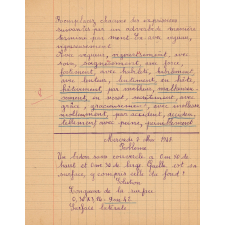 Remplacer chacune des expressions
suivantes par un adverbe de manière
terminé par ment. Ex. avec vigueur,
vigoureusement.
Avec vigueur, vigoureusement, avec
soin, soigneusement, en force,
fortement, avec habileté, habilement,
avec lenteur, lentement, en hâte,
hâtivement, par malheur, malheureu-
sement, en secret, secrètement, avec
grâce, gracieusement, avec mollesse
mollement, par accident, acciden-
tellement, avec peine, péniblement
Mercredi 5 Mai
Problème
Un bidon sans couvercle a 0m30 de
haut et 0m30 de large. Quelle est sa
surface, y compris celle du fond ?
Solution
Longueur de la surface
Surface latérale